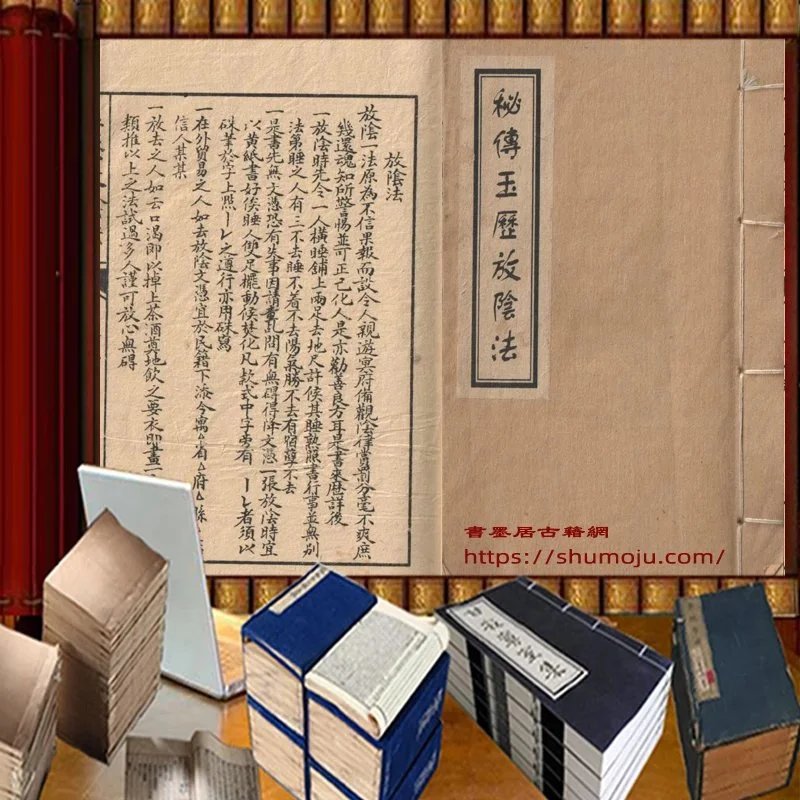 秘傳玉歷放陰法
放陰法
放陰一法原為不信果報而設令人親遊冥府備觀陰律賞罰分毫不爽庶
幾還魂知所警惕並可正己化人是亦勸善良方耳是書來歷詳後
一放陰時先令一人橫睡鋪上兩足去地尺許候其睡熟照書行事並無別
法第睡之人有三不去睡不着不去陽氣勝不去有宿孽不去
一是書先無文憑恐有失事因請乩問有無碍得降文憑一張放陰時宜
以黃紙書好俟睡人雙足擺動候焚化凡款式中字旁有丨レ者須以
硃筆於字上照丨レ之遵行亦用硃寫
一在外貿易之人如去放陰文憑宜於民籍下添今寓△省△府△縣
信人某某
一放去之人如云口渴即以掉上茶酒奠地飲之要衣即畫一
類推以上之法試過多人謹可放心無碍
書墨居古籍網
https://shumoju.com/